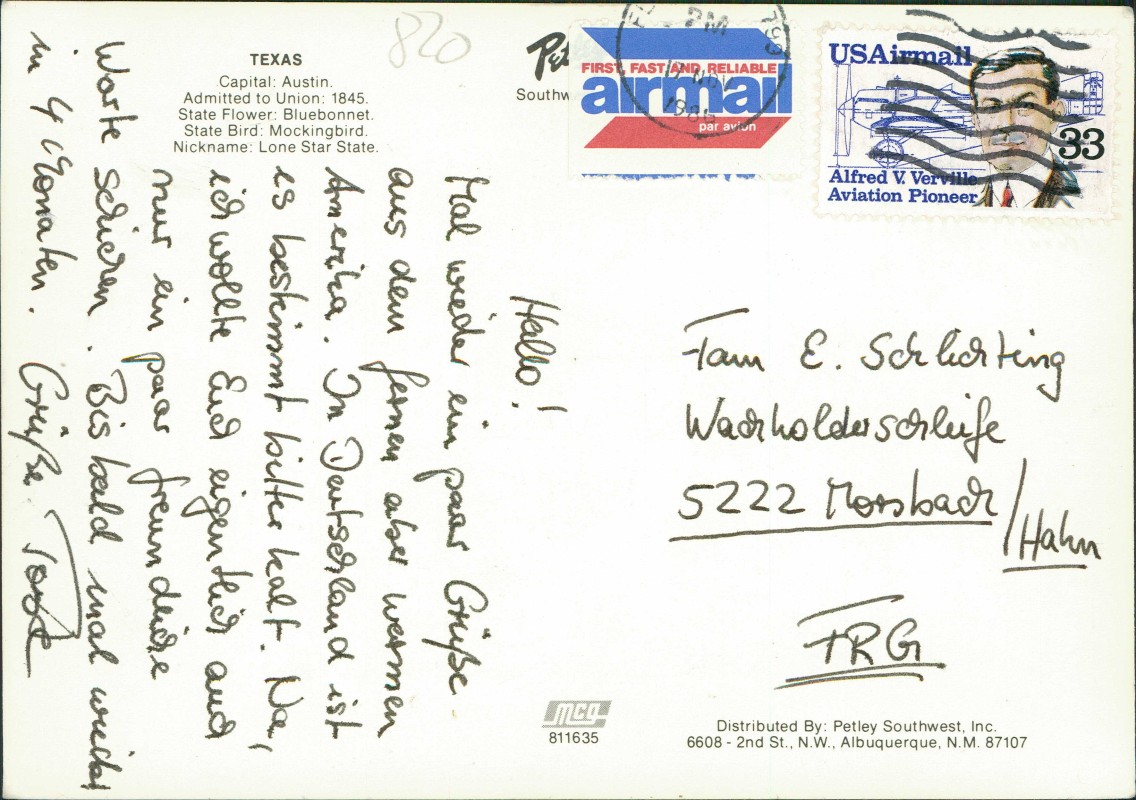 820
TEXAS
Capital: Austin.
Admitted to Union: 1845.
State Flower: Bluebonnet.
State Bird: Mockingbird.
Nickname: Lone Star State.
Pet
Southw
FIRST, FAST AND RELIABLE
airmail
par avion
PM
NOV
1985
799
USAirmail
33
Alfred V. Verville
Aviation Pioneer
Hallo!
Mal wieder ein paar Grüße
aus dem fernen aber warmen
Amerika. In Deutschland ist
es bestimmt bitter kalt. Na,
ich wollte Euch eigentlich auch
nur ein paar freundliche
Worte schicken. Bis bald mal wieder
in 4 Monaten. Grüße
Fam E. Schlichting
Wacholderschleife
5222 Morsbach
/Hahn
FRG
mcg
811635
Distributed By: Petley Southwest, Inc.
6608 - 2nd St., N.W., Albuquerque, N.M. 87107